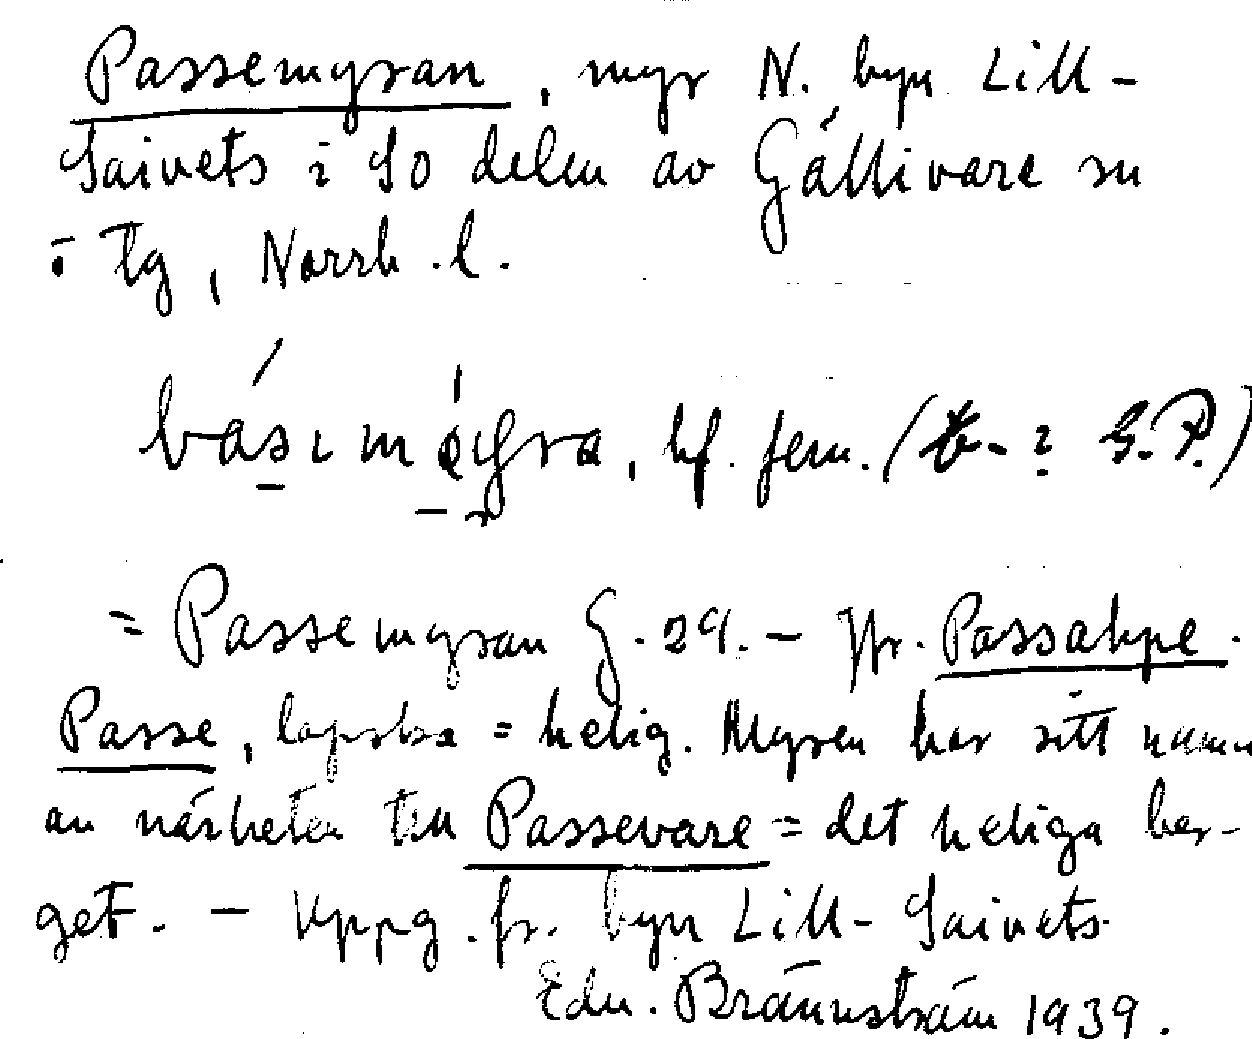 Passemyran, myr N. byn Lill-
Saivets i SO delen av Gällivare sn
i Lg, Norrb. l.
bf. fem. (b- ? G.P.)
= Passemyran G. 29. – Jfr. Passalipe.
Passe, lapska = helig. Myren har sitt namn
av närheten till Passevare = det heliga ber-
get. – Uppg. fr. byn Lill-Saivets.
Edv. Brännström 1939.